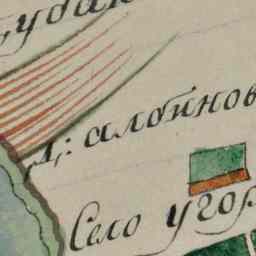 ,убак
д: албинов
Село угор